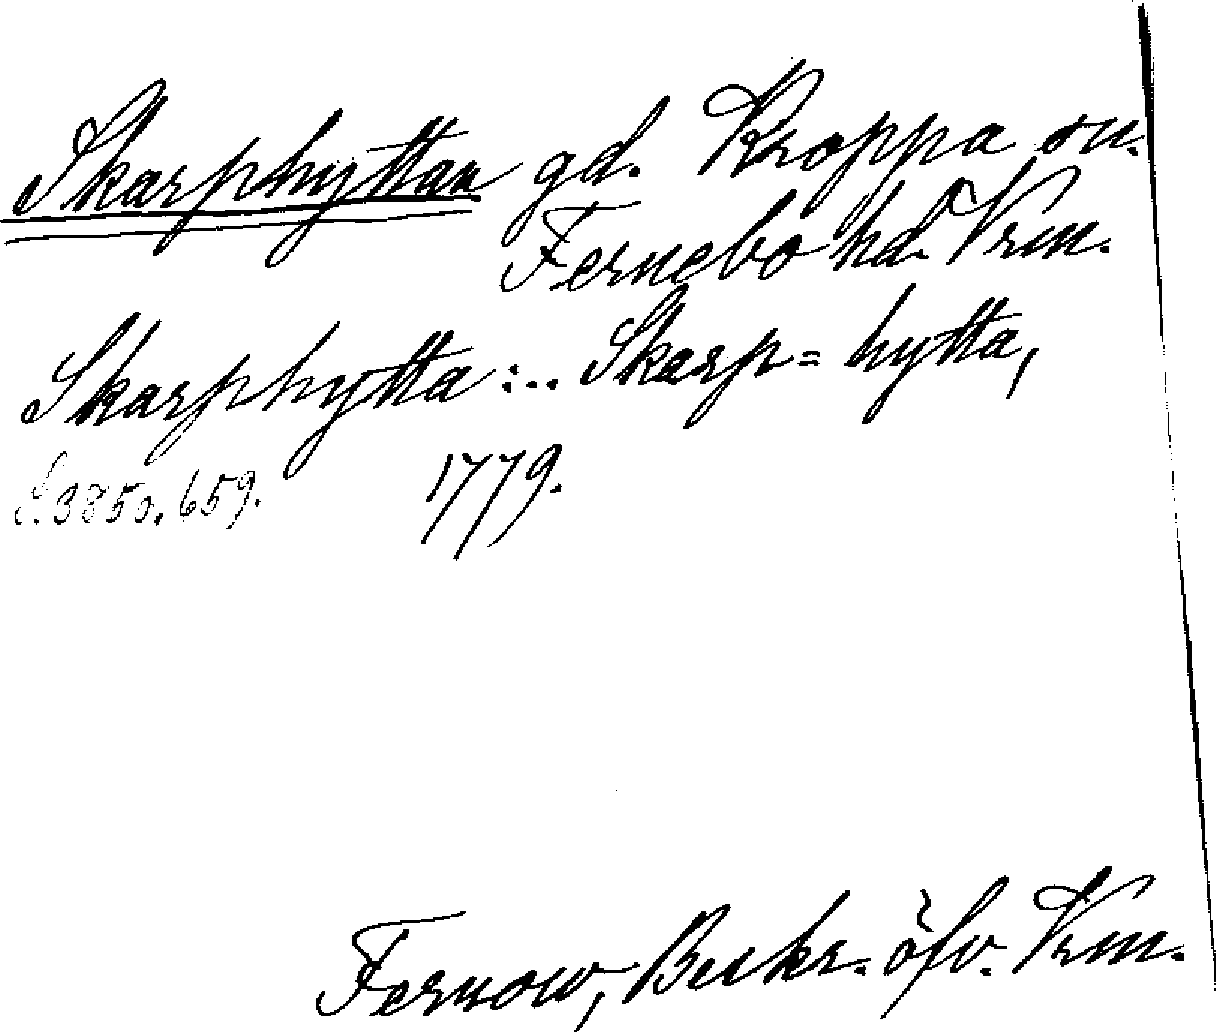 Skarphyttan gd. Kroppa sn.
Fernebo hd. Vrm.
Skarphytta:.. Skarp= hytta,
S. 385o. 659. 1779.
Fernow, Beskr. öfv. Vrm.